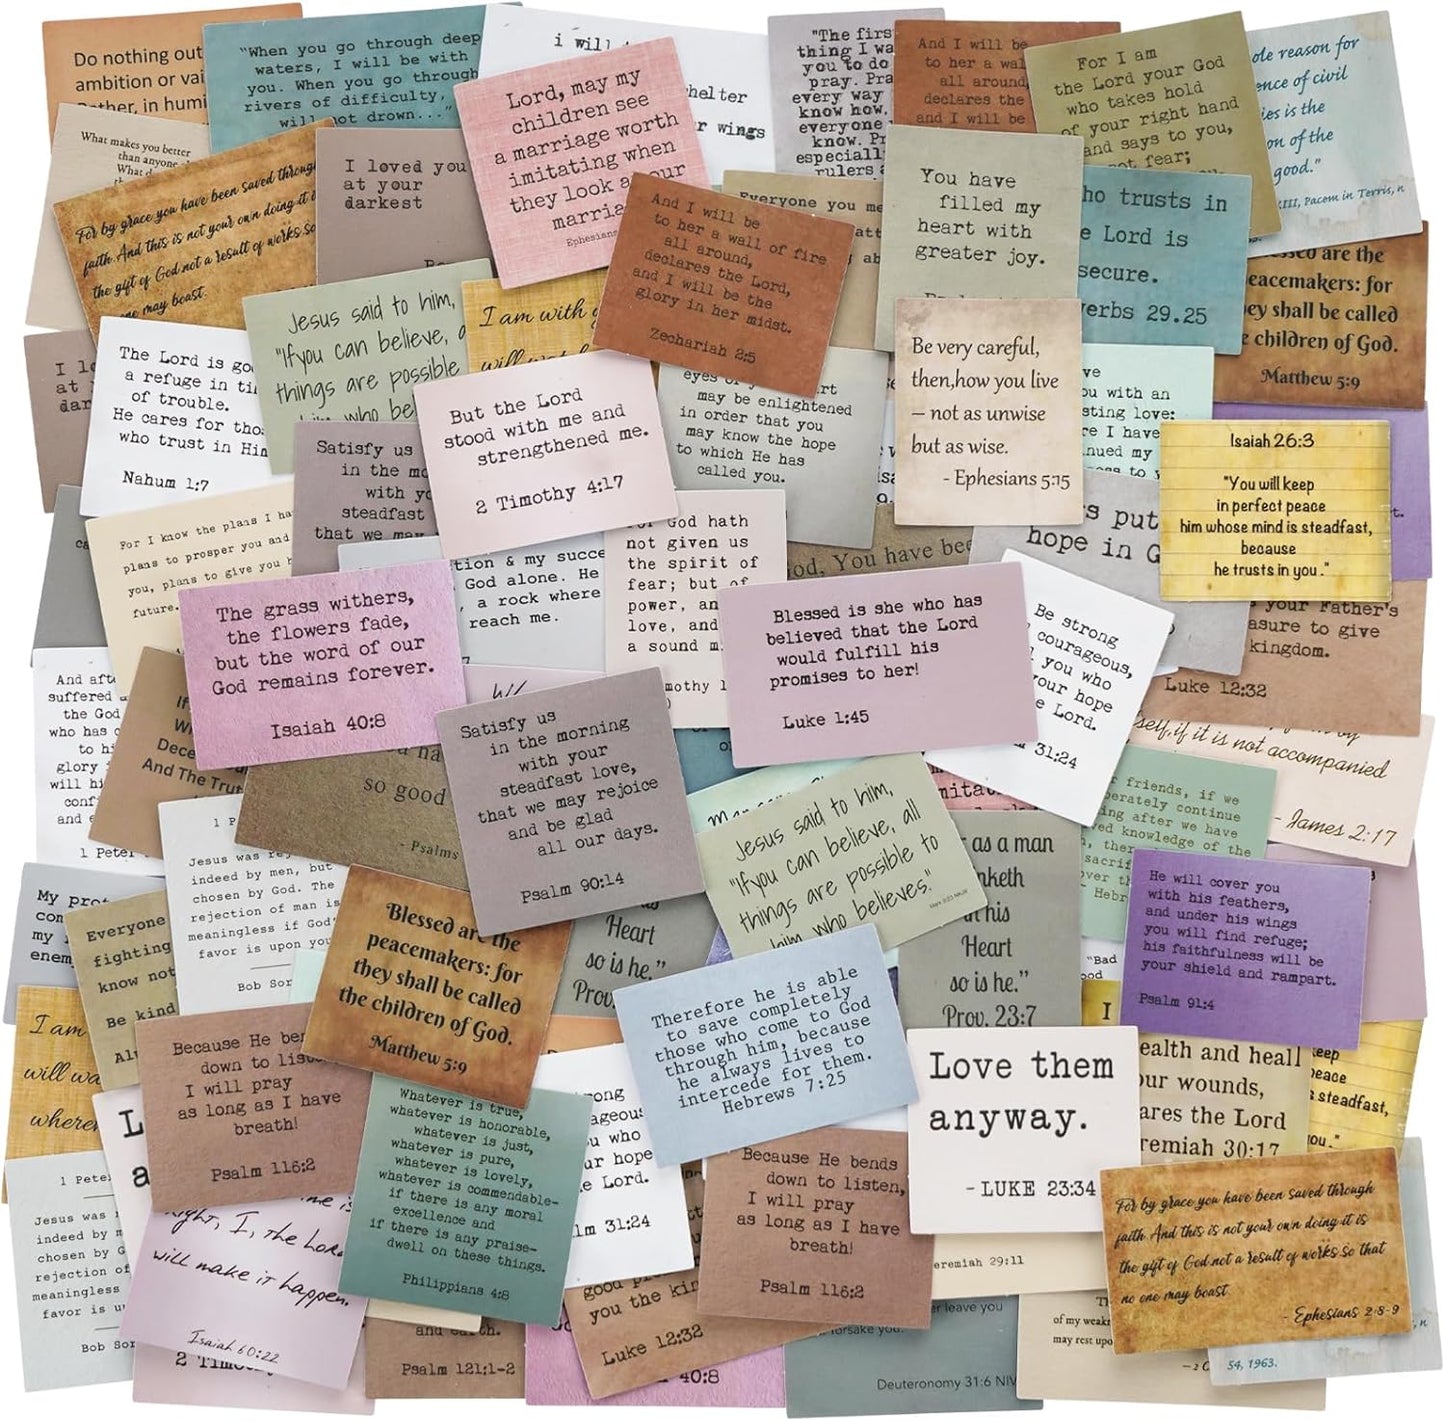 Do nothing out
ambition or vai
Rather, in humi
"When you go through deep
waters, I will be with
you. When you go through
rivers of difficulty,
will not drown..."
i will
helter
r wings
Lord, may my
children see
a marriage worth
imitating when
they look at our
marria
Ephesians
"The first
thing I wa
you to do
pray. Pra
every way
know how.
everyone
know. Pr
especiall
rulers a
And I will be
to her a wal
all around,
declares the
and I will be
For I am
the Lord your God
who takes hold
of your right hand
and says to you,
not fear;
ole reason for
ence of civil
ies is the
on of the
good."
III, Pacem in Terris, n
What makes you better
than anyone
What d
For by grace you have been saved through
faith. And this is not your own doing; it i
the gift of God, not a result of works, so
one may boast.
I loved you
at your
darkest
Ro
And I will be
to her a wall of fire
all around,
declares the Lord,
and I will be the
glory in her midst.
Zechariah 2:5
Everyone you me
att
ng ab
You have
filled my
heart with
greater joy.
ho trusts in
e Lord is
secure.
verbs 29.25
essed are the
eacemakers: for
ey shall be called
e children of God.
Matthew 5:9
I lo
at
dar
The Lord is go
a refuge in ti
of trouble.
He cares for tho
who trust in Him
Nahum 1:7
Jesus said to him,
"If you can believe, a
things are possible
him who be
I am with
will wat
But the Lord
stood with me and
strengthened me.
2 Timothy 4:17
eyes of y rt
may be enlightened
in order that you
may know the hope
to which He has
called you.
Be very careful,
then,how you live
– not as unwise
but as wise.
- Ephesians 5:15
ve
you with an
sting love:
re I have
nued my
ness to y
Isaiah 26:3
"You will keep
in perfect peace
him whose mind is steadfast,
because
he trusts in you."
Satisfy us
in the mo
with yo
steadfast
that we may
For I know the plans I ha
plans to prosper you and
you, plans to give you h
future.
tion & my succe
God alone. He
, a rock where
reach me.
For God hath
not given us
the spirit of
fear; but of
power, an
love, and
a sound m
mothy 1
od, You have bee
s put
hope in G
The grass withers,
the flowers fade,
but the word of our
God remains forever.
Isaiah 40:8
Blessed is she who has
believed that the Lord
would fulfill his
promises to her!
Luke 1:45
Be strong
courageous,
l you who
your hope
e Lord.
m 31:24
your Father's
asure to give
kingdom.
Luke 12:32
And afte
suffered a
the God
who has c
to hi
glory i
will hi
conf
and e
1 Peter
If
Wi
Dece
And The Trut
so good
- Psalms
Satisfy us
in the morning
with your
steadfast love,
that we may rejoice
and be glad
all our days.
Psalm 90:14
self, if it is not accompanied
- James 2:17
r friends, if we
berately continue
ing after we have
ved knowledge of the
h, ther
sacrif
over th
- Hebr
1 P
Jesus was rej
indeed by men, but
chosen by God. The
rejection of man is
meaningless if God'
favor is upon you
Bob Sor
imitat
Jesus said to him,
"If you can believe, all
things are possible to
him who believes."
Mark 9:23 NKJV
as a man
inketh
in his
Heart
so is he."
Prov. 23:7
He will cover you
with his feathers,
and under his wings
you will find refuge;
his faithfulness will be
your shield and rampart.
Psalm 91:4
My prot
com
my
enem
Everyone
fighting
know not
Be kind
Alw
Blessed are the
peacemakers: for
they shall be called
the children of God.
Matthew 5:9
Heart
so is he."
Prov.
Therefore he is able
to save completely
those who come to God
through him, because
he always lives to
intercede for them.
Hebrews 7:25
"Bad
ood
I
I am
will wa
wheren
Because He ben
down to list
I will pray
as long as I have
breath!
Psalm 116:2
L
a
Whatever is true,
whatever is honorable,
whatever is just,
whatever is pure,
whatever is lovely,
whatever is commendable-
if there is any moral
excellence and
if there is any praise-
dwell on these things.
Philippians 4:8
rong
ageous
u who
ur hope
e Lord.
lm 31:24
Love them
anyway.
-LUKE 23:34
ealth and heal
our wounds,
ares the Lord
remiah 30:17
keep
peace
s steadfast,
you."
1 Peter
Jesus was
indeed by m
chosen by G
rejection of
meaningless
favor is u
Bob Sor
right, I, the Lord
will make it happen.
Isaiah 60:22
2 Timo
and earth.
Psalm 121:1-2
good
you the kin
Luke 12:32
40:8
Because He bends
down to listen,
I will pray
as long as I have
breath!
Psalm 116:2
eremiah 29:11
er leave you
forsake you.
Deuteronomy 31:6 NIV
Th
of my weakn
may rest upo
—2 C
For by grace you have been saved through
faith. And this is not your own doing; it is
the gift of God, not a result of works, so that
no one may boast.
- Ephesians 2:8-9
54, 1963.